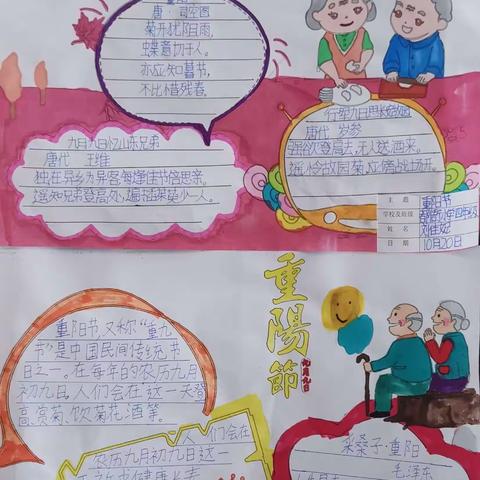 唐·司空图
菊开犹阻雨,
蝶意切于人。
亦应知暮节,
不比惜残春。
九月九日忆山东兄弟
唐代 王维
独在异乡为异客,每逢佳节倍思亲。
遥知兄弟登高处,遍插茱萸少一人。
行军九日思长安故园
唐代 岑参
强欲登高去,无人送酒来。
遥怜故园菊,应傍战场开。
主题 重阳节
学校及班级
姓名
日期 10月20日
重陽節
九月九日
重阳节,又称“重九
节”是中国民间传统节
日之一。在每年的农历九月
初九日,人们会在这一天登
高、赏菊、饮菊花酒等。
人们会在
农历九月初九日这一
采桑子·重阳
毛泽东